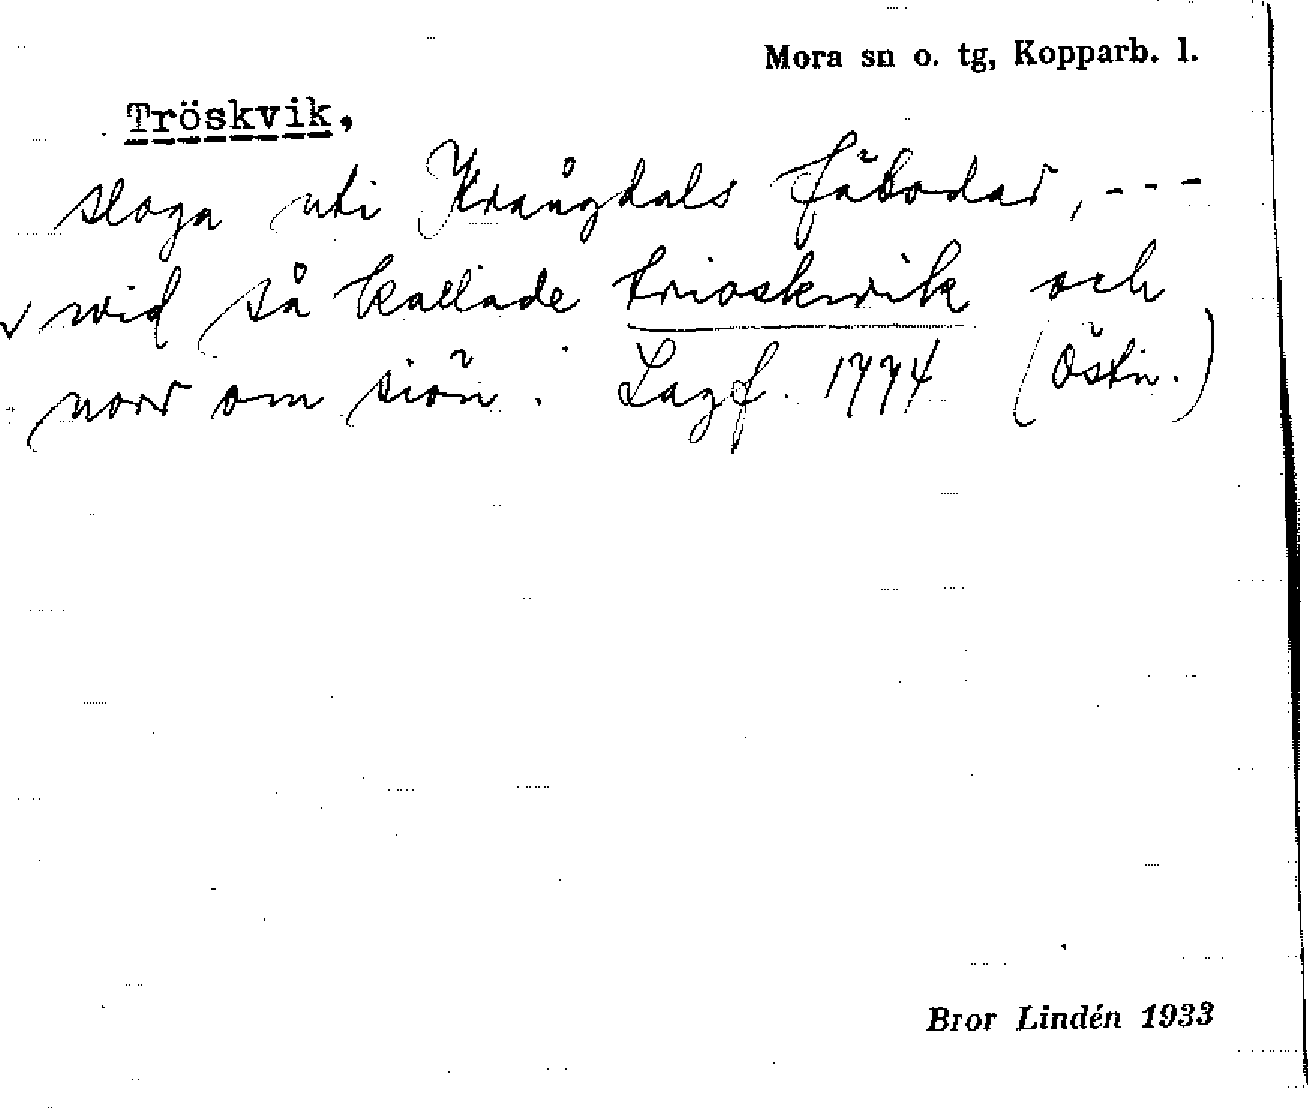 Mora sn o. tg, Kopparb. l.
Tröskvik,
sloga uti Krångdals fäbodar, ---
wid så kallade trioskwik och
norr om siön. Lagf. 1774 (Östn.)
Bror Lindén 1933